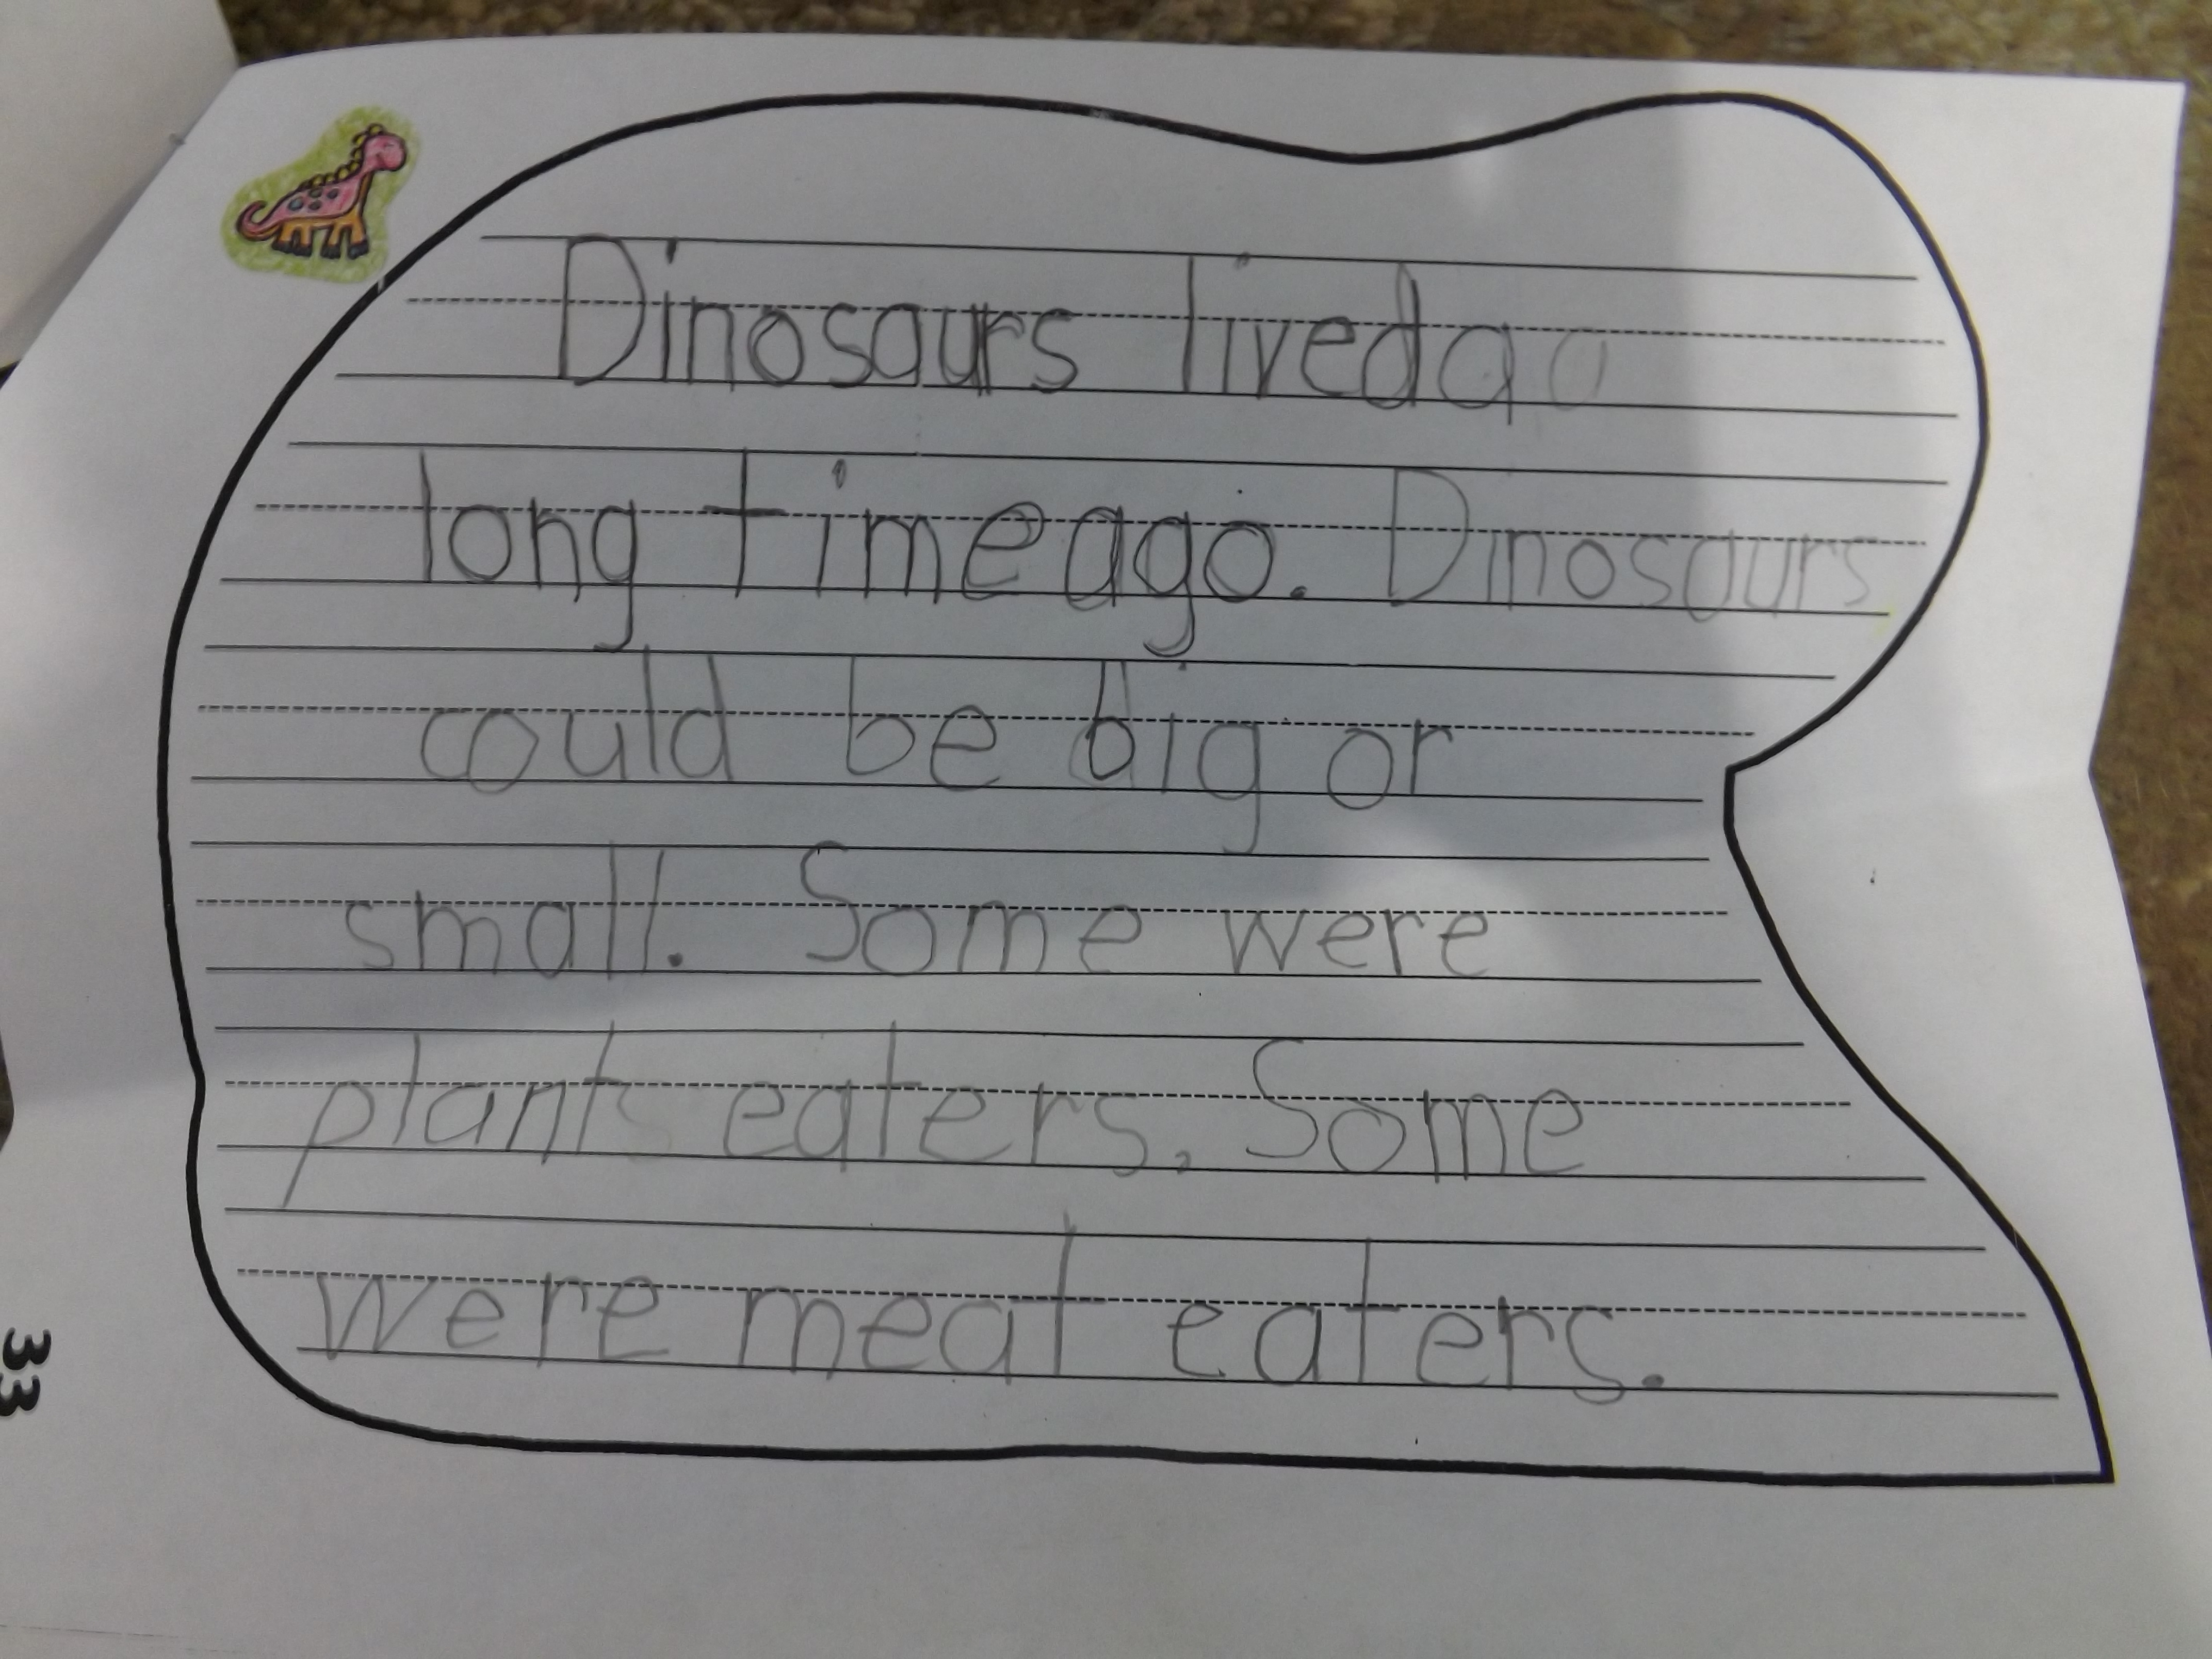 Dinosaurs lived a a
long time ago. Dinosaurs
could be big or
small. Some were
plants eaters. Some
were meat eaters.
33